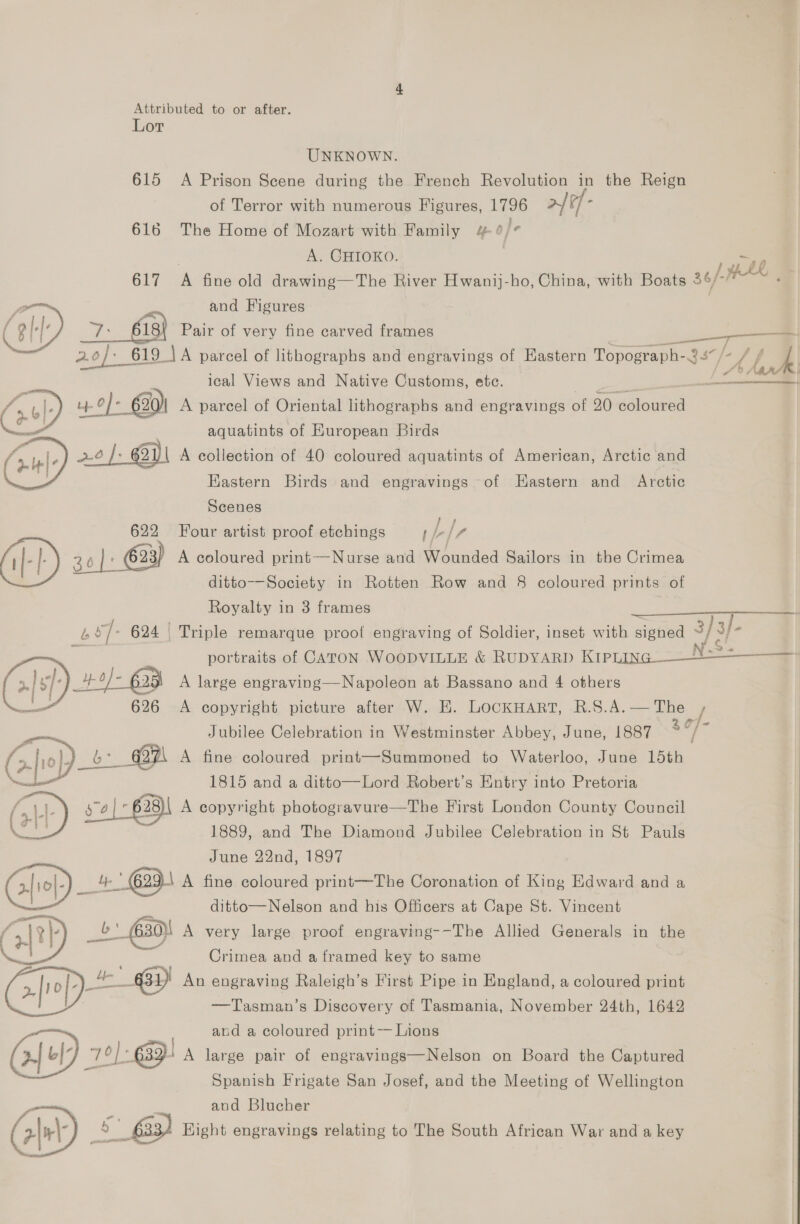 4
Attributed to or after.
Lot
UNKNOWN.
615 A Prison Scene during the French Revolution in the Reign
of Terror with numerous Figures, 1796
616 The Home of Mozart with Family 40/-
A. CHIOKO.
617 A fine old drawing—The River Hwanij-ho, China, with Boats 36/-
and Figures
7- 618 Pair of very fine carved frames
20/- 619 A parcel of lithographs and engravings of Eastern Topograph- 35/-
ical Views and Native Customs, etc.
(2/6/-) 40/- 620 A parcel of Oriental lithographs and engravings of 20 coloured
aquatints of European Birds
20/- 621 A collection of 40 coloured aquatints of American, Arctic and
Eastern Birds and engravings of Eastern and Arctic
Scenes
622 Four artist proof etchings
(1/-/-) 30/- 623 A coloured print—Nurse and Wounded Sailors in the Crimea
ditto—Society in Rotten Row and 8 coloured prints of
Royalty in 3 frames
65/- 624 Triple remarque proof engraving of Soldier, inset with signed 3/3/-
portraits of CATON WOODVILLE & RUDYARD KIPLING N.S.
(2/5/-) 40/- 625 A large engraving—Napoleon at Bassano and 4 others
626 A copyright picture after W. E. LOCKHART, R.S.A.—The
Jubilee Celebration in Westminster Abbey, June, 1887 30/-
(2/10/-) 6- 627 A fine coloured print—Summoned to Waterloo, June 15th
1815 and a ditto—Lord Robert's Entry into Pretoria
(2/-/-) 50/- 628 A copyright photogravure—The First London County Council
1889, and The Diamond Jubilee Celebration in St Pauls
June 22nd, 1897
(2/10/-) 4- 629 A fine coloured print—The Coronation of King Edward and a
ditto—Nelson and his Officers at Cape St. Vincent
(2/8/-) 6- 630 A very large proof engraving--The Allied Generals in the
Crimea and a framed key to same
(2/10/-) 4- 631 An engraving Raleigh's First Pipe in England, a coloured print
—Tasman's Discovery of Tasmania, November 24th, 1642
and a coloured print—Lions
(2/6/-) 70/- 632 A large pair of engravings—Nelson on Board the Captured
Spanish Frigate San Josef, and the Meeting of Wellington
and Blucher
5- 633 Eight engravings relating to The South African War and a key